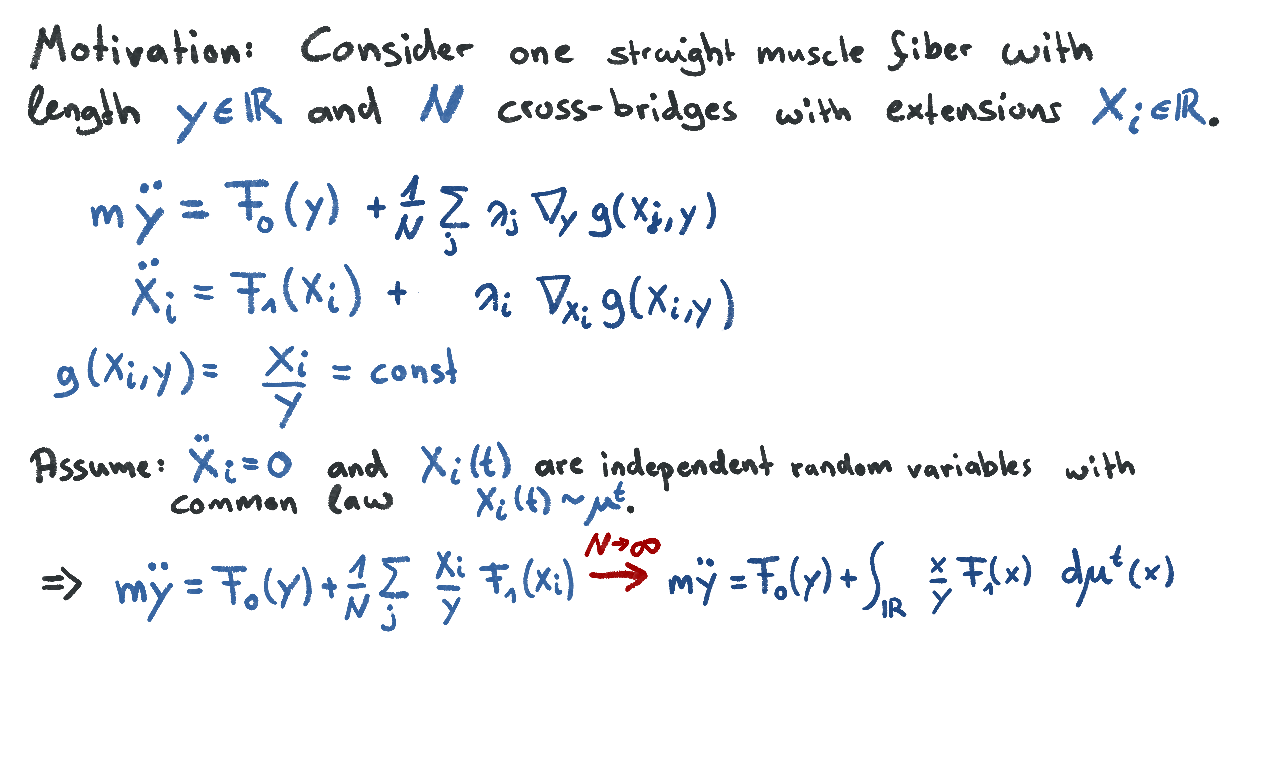 Motivation: Consider one straight muscle fiber with
length y ∈ ℝ and N cross-bridges with extensions X_i ∈ ℝ.
m ÿ = F_0(y) + 1/N ∑_j λ_j ∇_y g(X_j, y)
Ẍ_i = F_1(X_i) + λ_i ∇_{X_i} g(X_i, y)
g(X_i, y) = X_i / y = const
Assume: Ẍ_i = 0 and X_i(t) are independent random variables with
common law X_i(t) ~ μ^t.
⇒ m ÿ = F_0(y) + 1/N ∑_j X_i/y F_1(X_i) N→∞ → m ÿ = F_0(y) + ∫_ℝ x/y F_1(x) dμ^t(x)